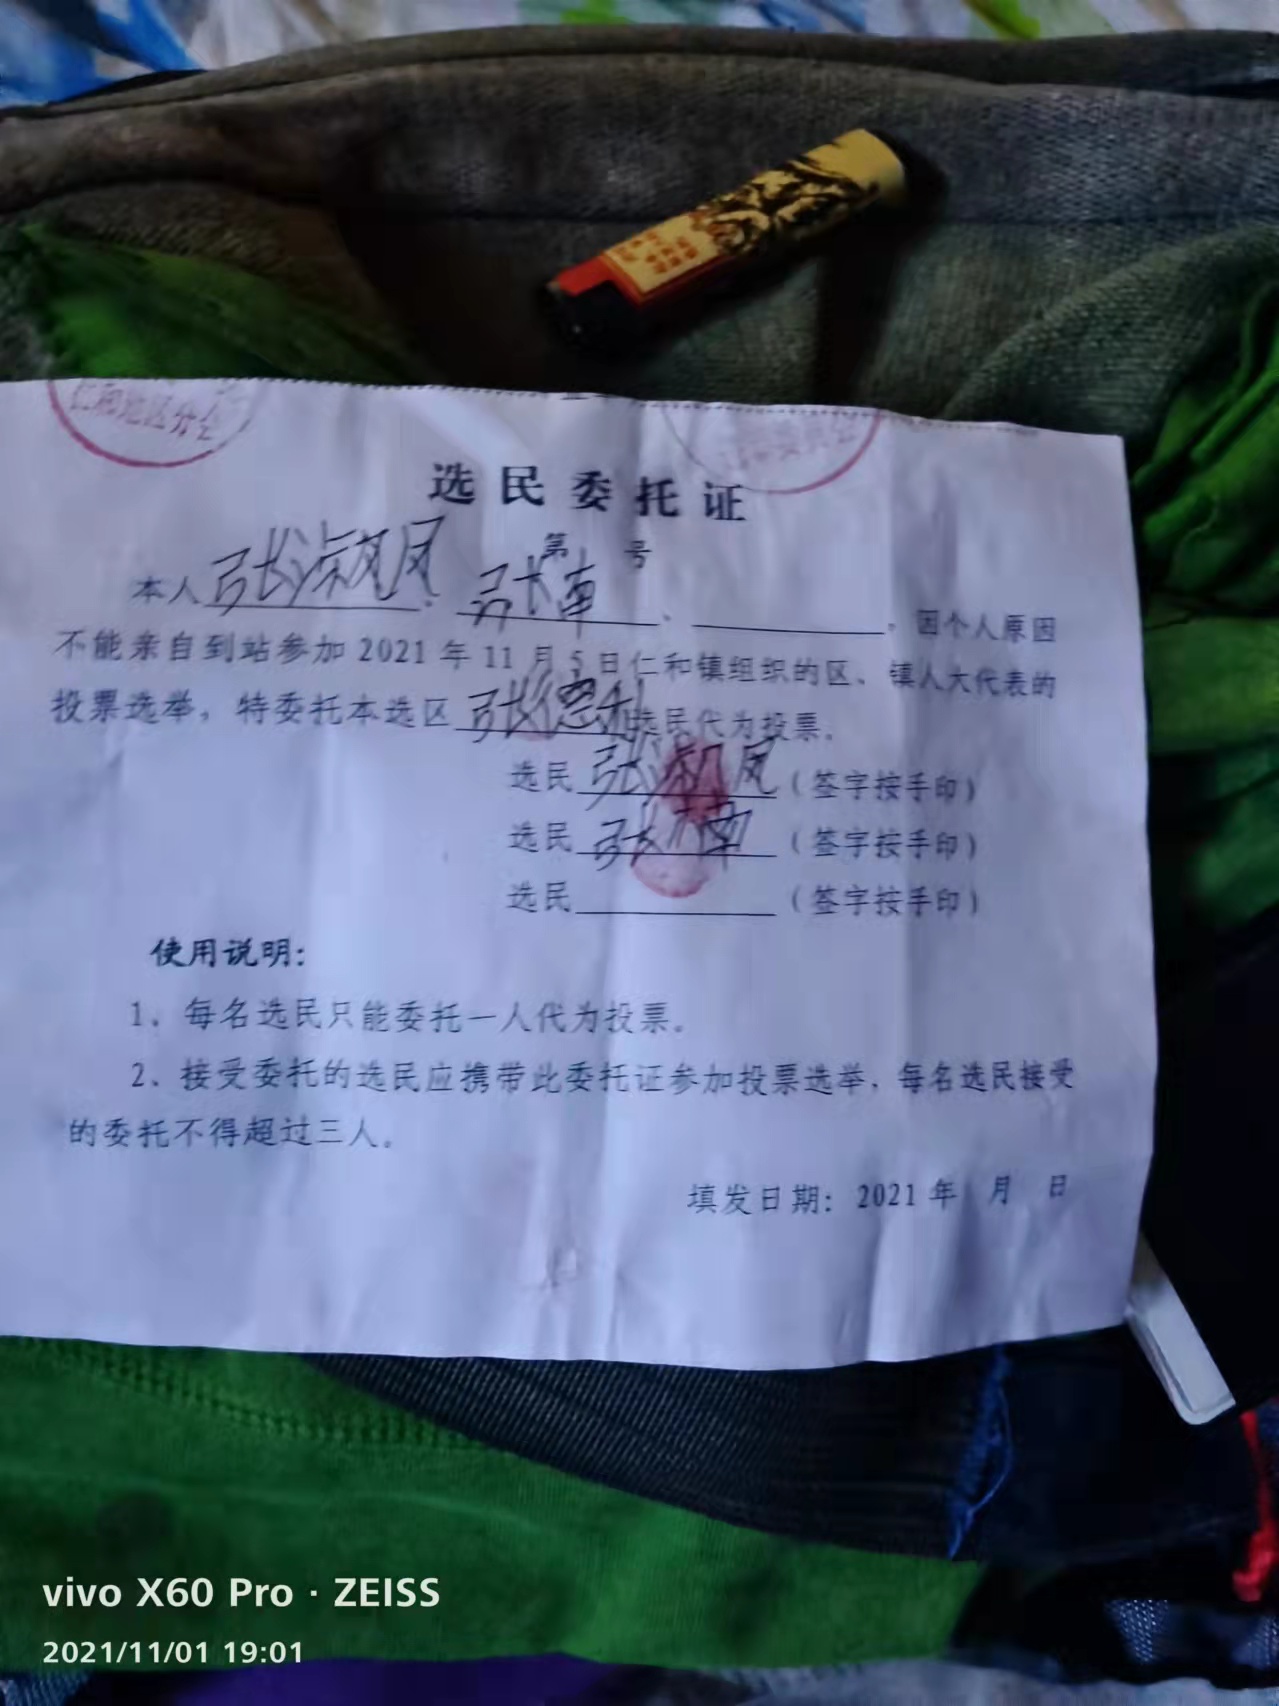 仁和地区分会
选民委托证
第 号
本人张淑凤、张南、，因个人原因
不能亲自到站参加2021年11月5日仁和镇组织的区、镇人大代表的
投票选举，特委托本选区张德利选民代为投票。
选民张淑凤（签字按手印）
选民张南（签字按手印）
选民（签字按手印）
使用说明：
1、每名选民只能委托一人代为投票。
2、接受委托的选民应携带此委托证参加投票选举，每名选民接受
的委托不得超过三人。
填发日期：2021年 月 日
vivo X60 Pro · ZEISS
2021/11/01 19:01